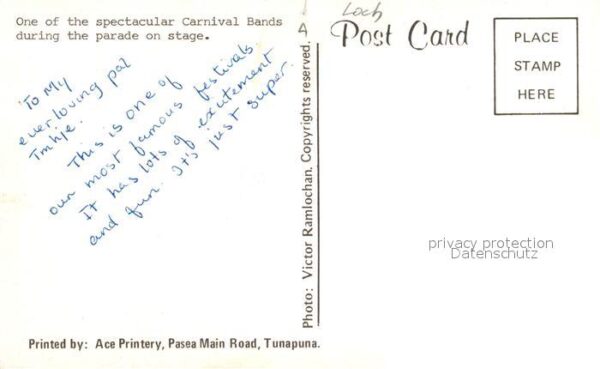 One of the spectacular Carnival Bands
during the parade on stage.
To My
everloving pal
This is one of
our most famous festivals
It has lots of excitement
and fun. It's just super.
Photo: Victor Ramlochan. Copyrights reserved.
A
Loch
Post Card
PLACE
STAMP
HERE
privacy protection
Datenschutz
Printed by: Ace Printery, Pasea Main Road, Tunapuna.